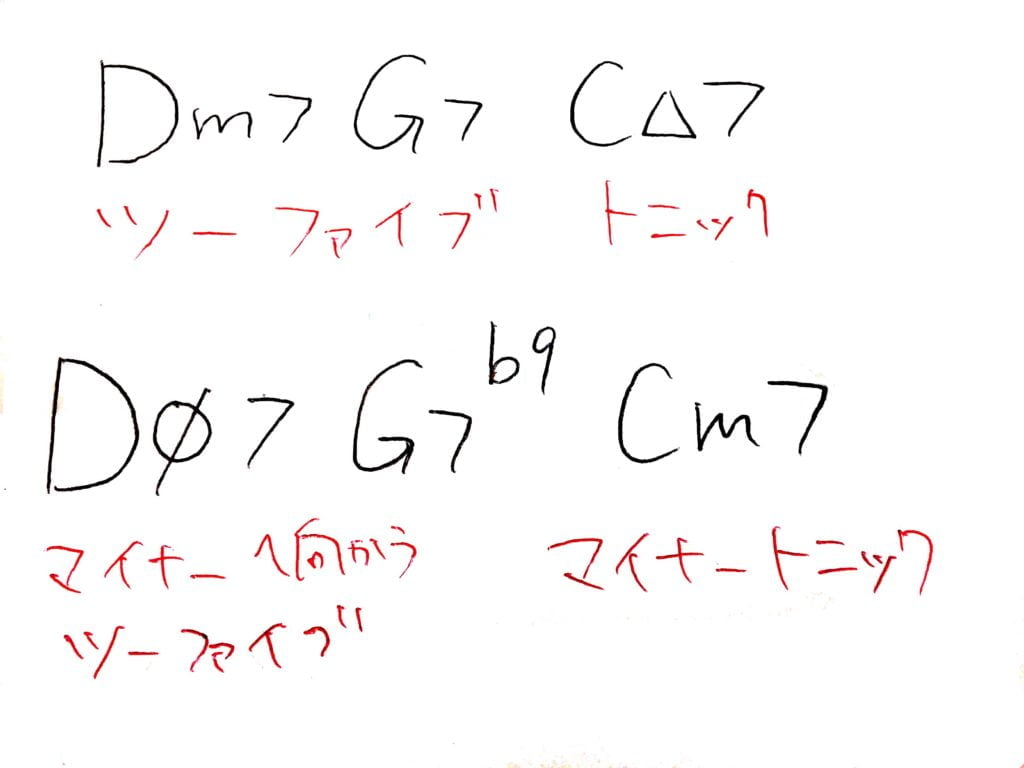 Dm7 G7 C△7
ツーファイブ トニック
Dø7 G7b9 Cm7
マイナーへ向かう マイナートニック
ツーファイブ